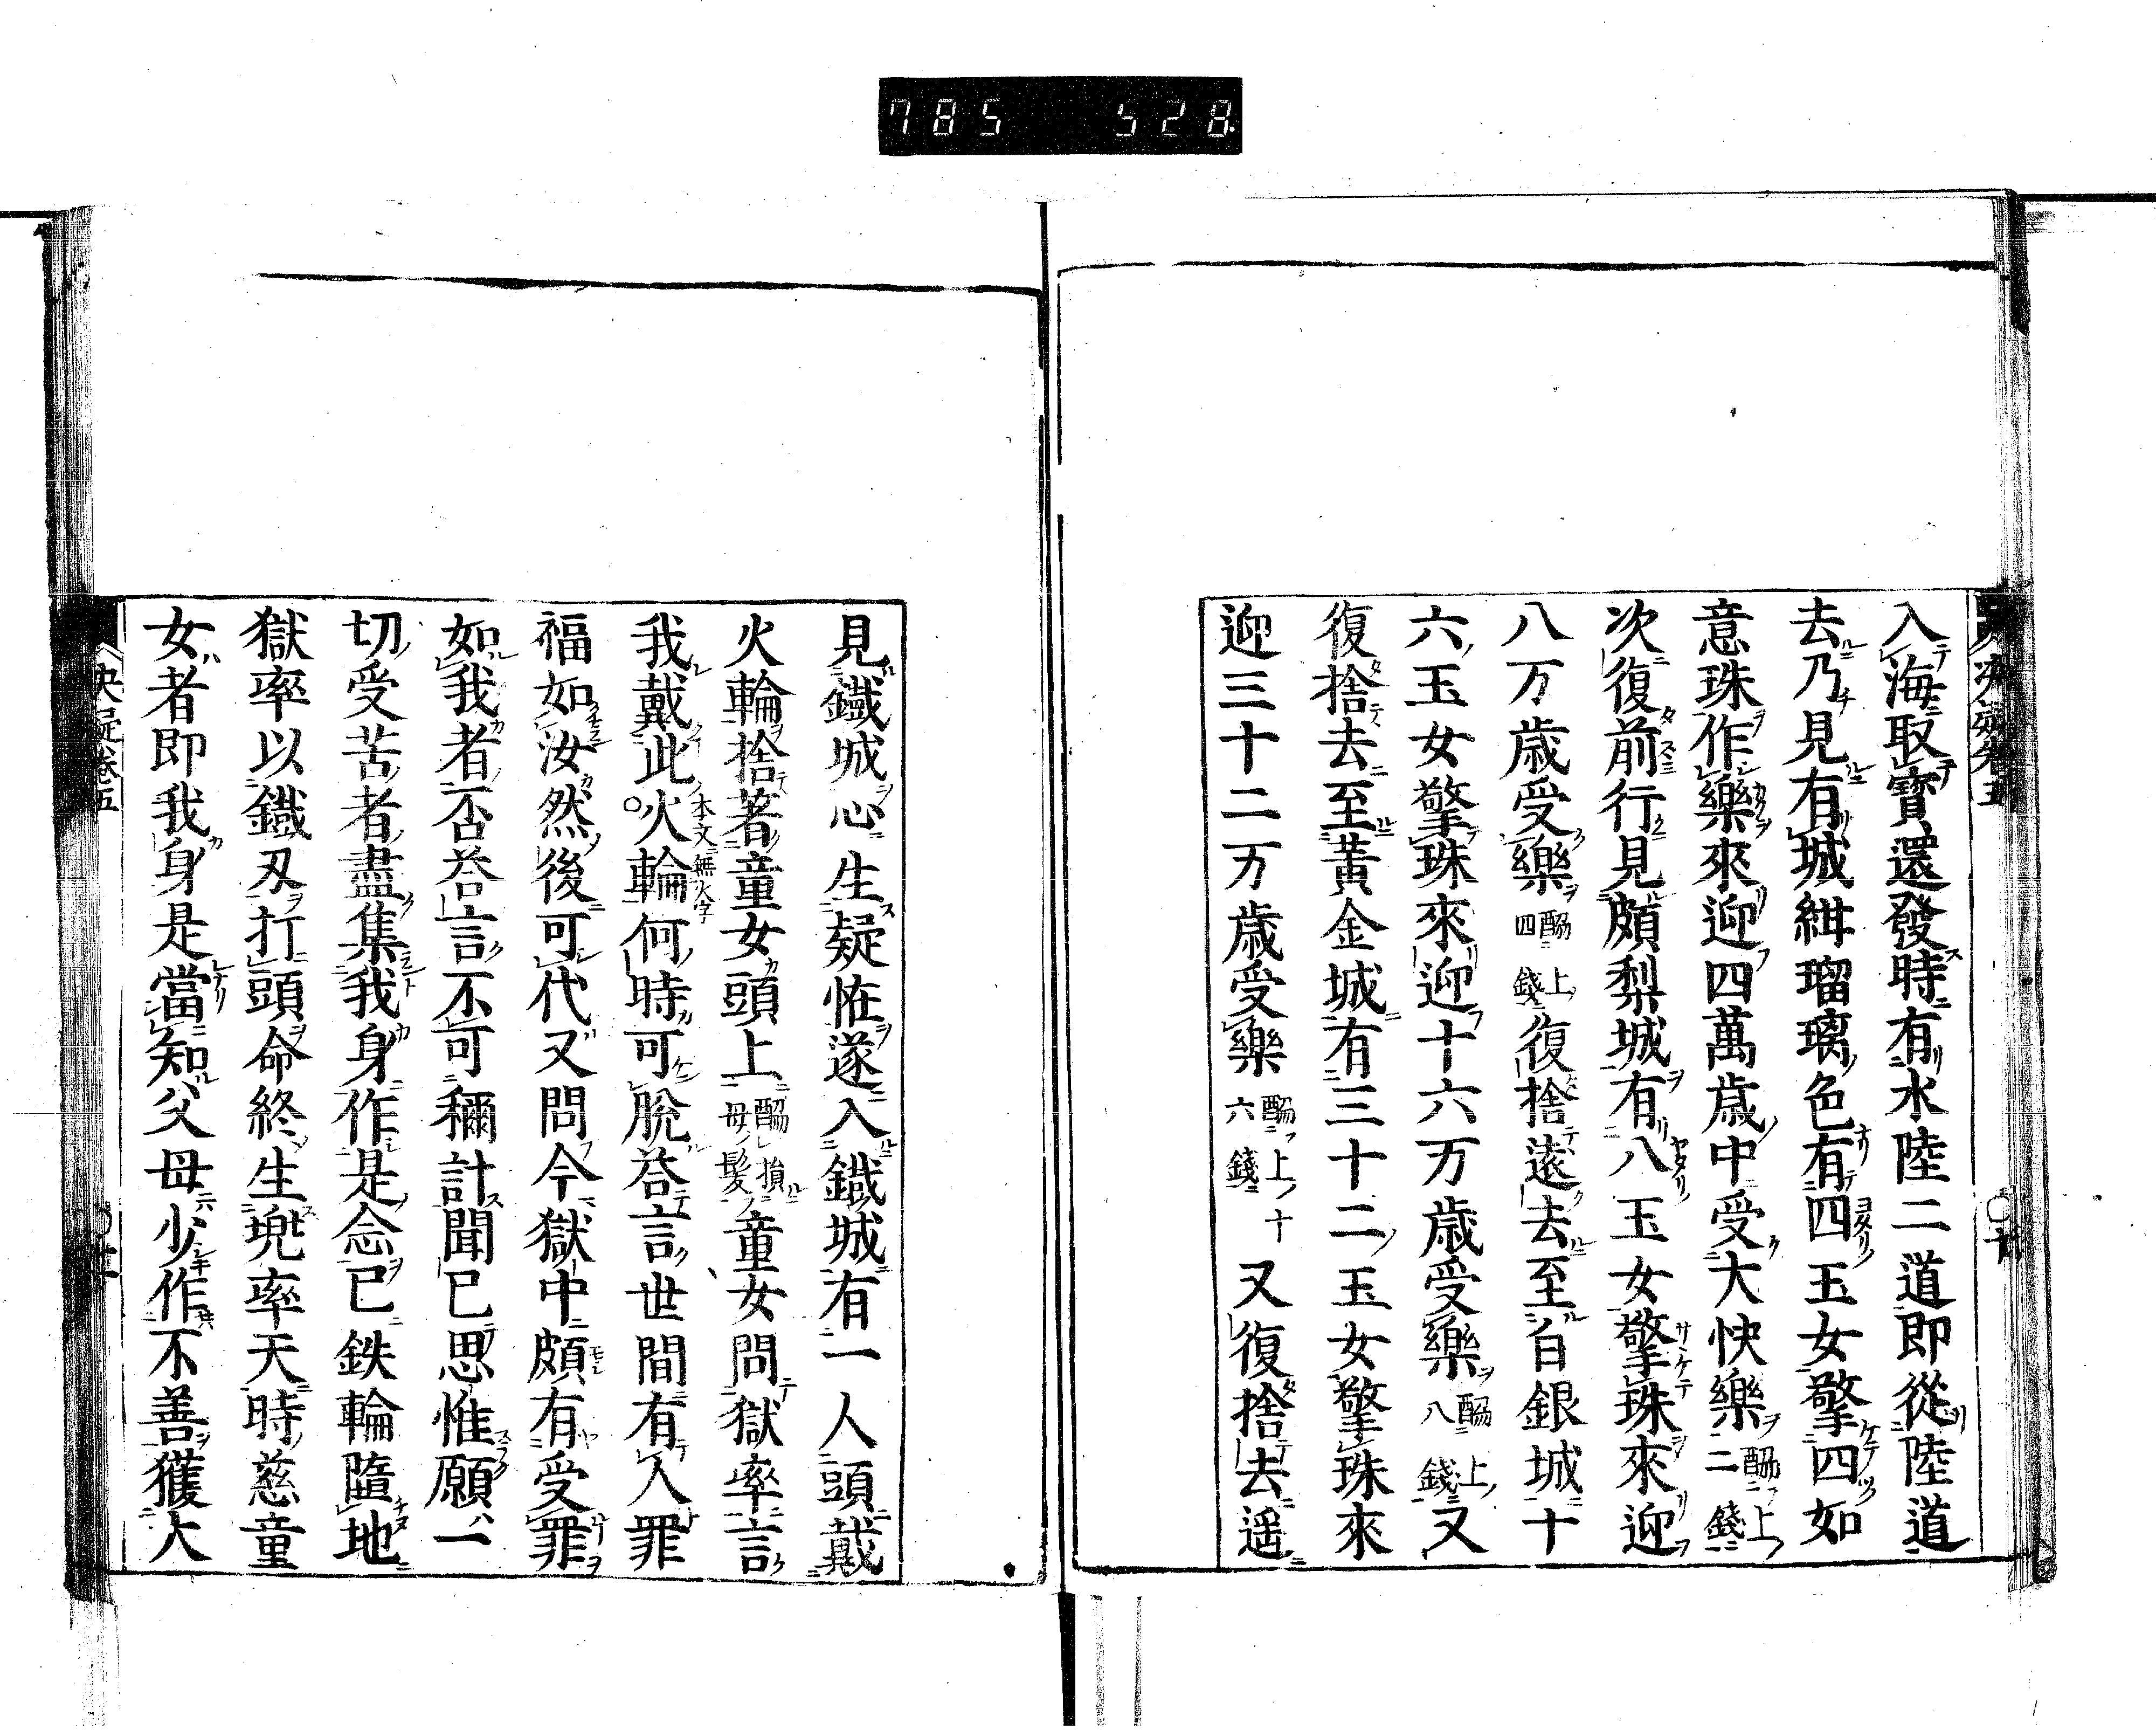 785 528
入海取寶還發時有水陸二道即從陸道
去乃見有城紺瑠璃色有四玉女擎四如
意珠作樂來迎四萬歳中受大快樂酬上二錢
次復前行見頗梨城有八玉女擎珠來迎
八万歳受樂酬上四錢復捨遠去至白銀城十
六玉女擎珠來迎十六万歳受樂酬上八錢又
復捨去至黃金城有三十二玉女擎珠來
迎三十二万歳受樂酬上十六錢又復捨去遥
見鐵城心生疑恠遂入鐵城有一人頭戴
火輪捨著童女頭上酬損母髮童女問獄率言
我戴此火輪何時可脫荅言世間有人罪
本文無火字
福如汝然後可代又問今獄中頗有受罪
如我者否荅言不可稱計聞已思惟願一
切受苦者盡集我身作是念已鉄輪墮地
獄率以鐵刄打頭命終生兜率天時慈童
女者即我身是當知父母少作不善獲大
決疑卷五